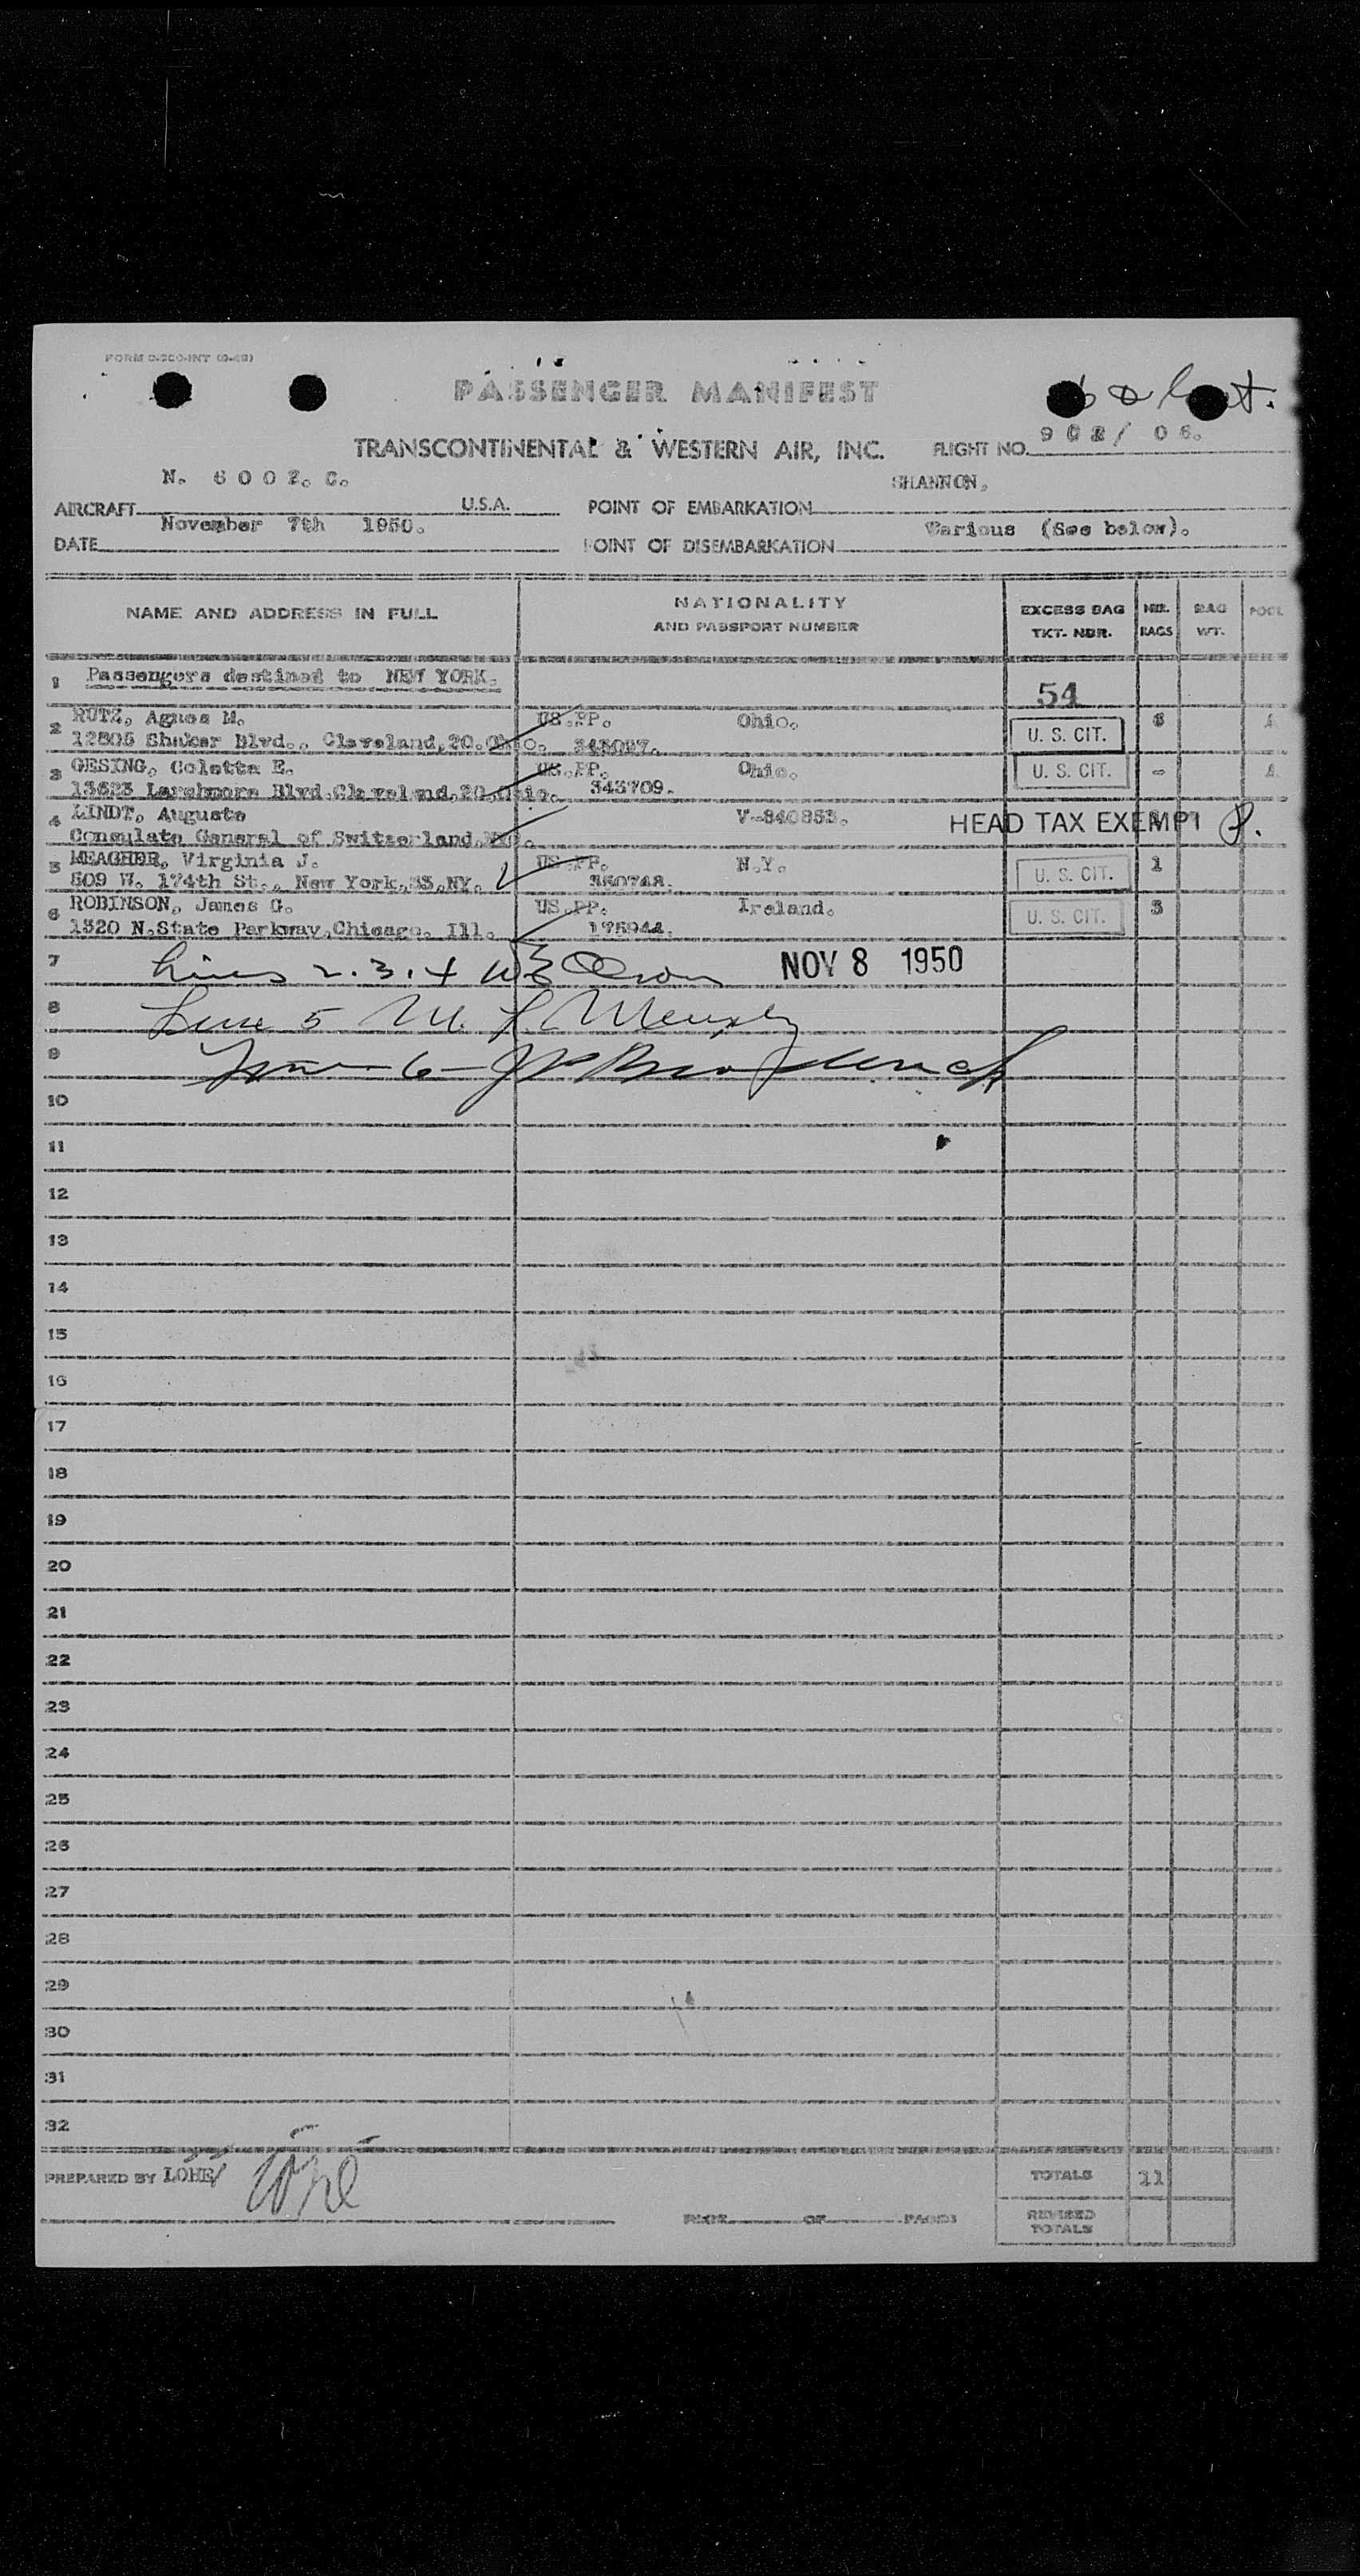 PASSENGER MANIFEST
TRANSCONTINENTAL & WESTERN AIR, INC. FLIGHT NO. / 06.
N. 6002. C. SHANNON,
AIRCRAFT U.S.A. POINT OF EMBARKATION
November 7th 1950. Various (See below).
DATE POINT OF DISEMBARKATION
NAME AND ADDRESS IN FULL
NATIONALITY
AND PASSPORT NUMBER
EXCESS BAG
TKT. NBR.
NBR.
BAGS
BAG
WT.
1 Passengers destined to NEW YORK.
54
2 RUTZ, Agnes M. US.PP. Ohio.
Shaker Blvd., Cleveland,20.Ohio. U. S. CIT.
3 GESING, Colette E. US.PP. Ohio. U. S. CIT. -
13623 Larchmere Blvd.Cleveland,20,Ohio. 343709.
4 LINDT, Auguste V-840853. HEAD TAX EXEMPT
Consulate General of Switzerland,NYC.
5 MEAGHER, Virginia J. US.PP. N.Y. U. S. CIT. 1
509 W. 174th St., New York,33,NY. 350748.
6 ROBINSON, James G. US.PP. Ireland. U. S. CIT. 3
1320 N.State Parkway,Chicago. Ill. 175944.
7 Lines 2.3.4 NOV 8 1950
8 Line 5 M.
9 6
10
11
12
13
14
15
16
17
18
19
20
21
22
23
24
25
26
27
28
29
30
31
32
PREPARED BY LOHE/ TOTALS 11
PAGE OF PAGES REVISED
TOTALS